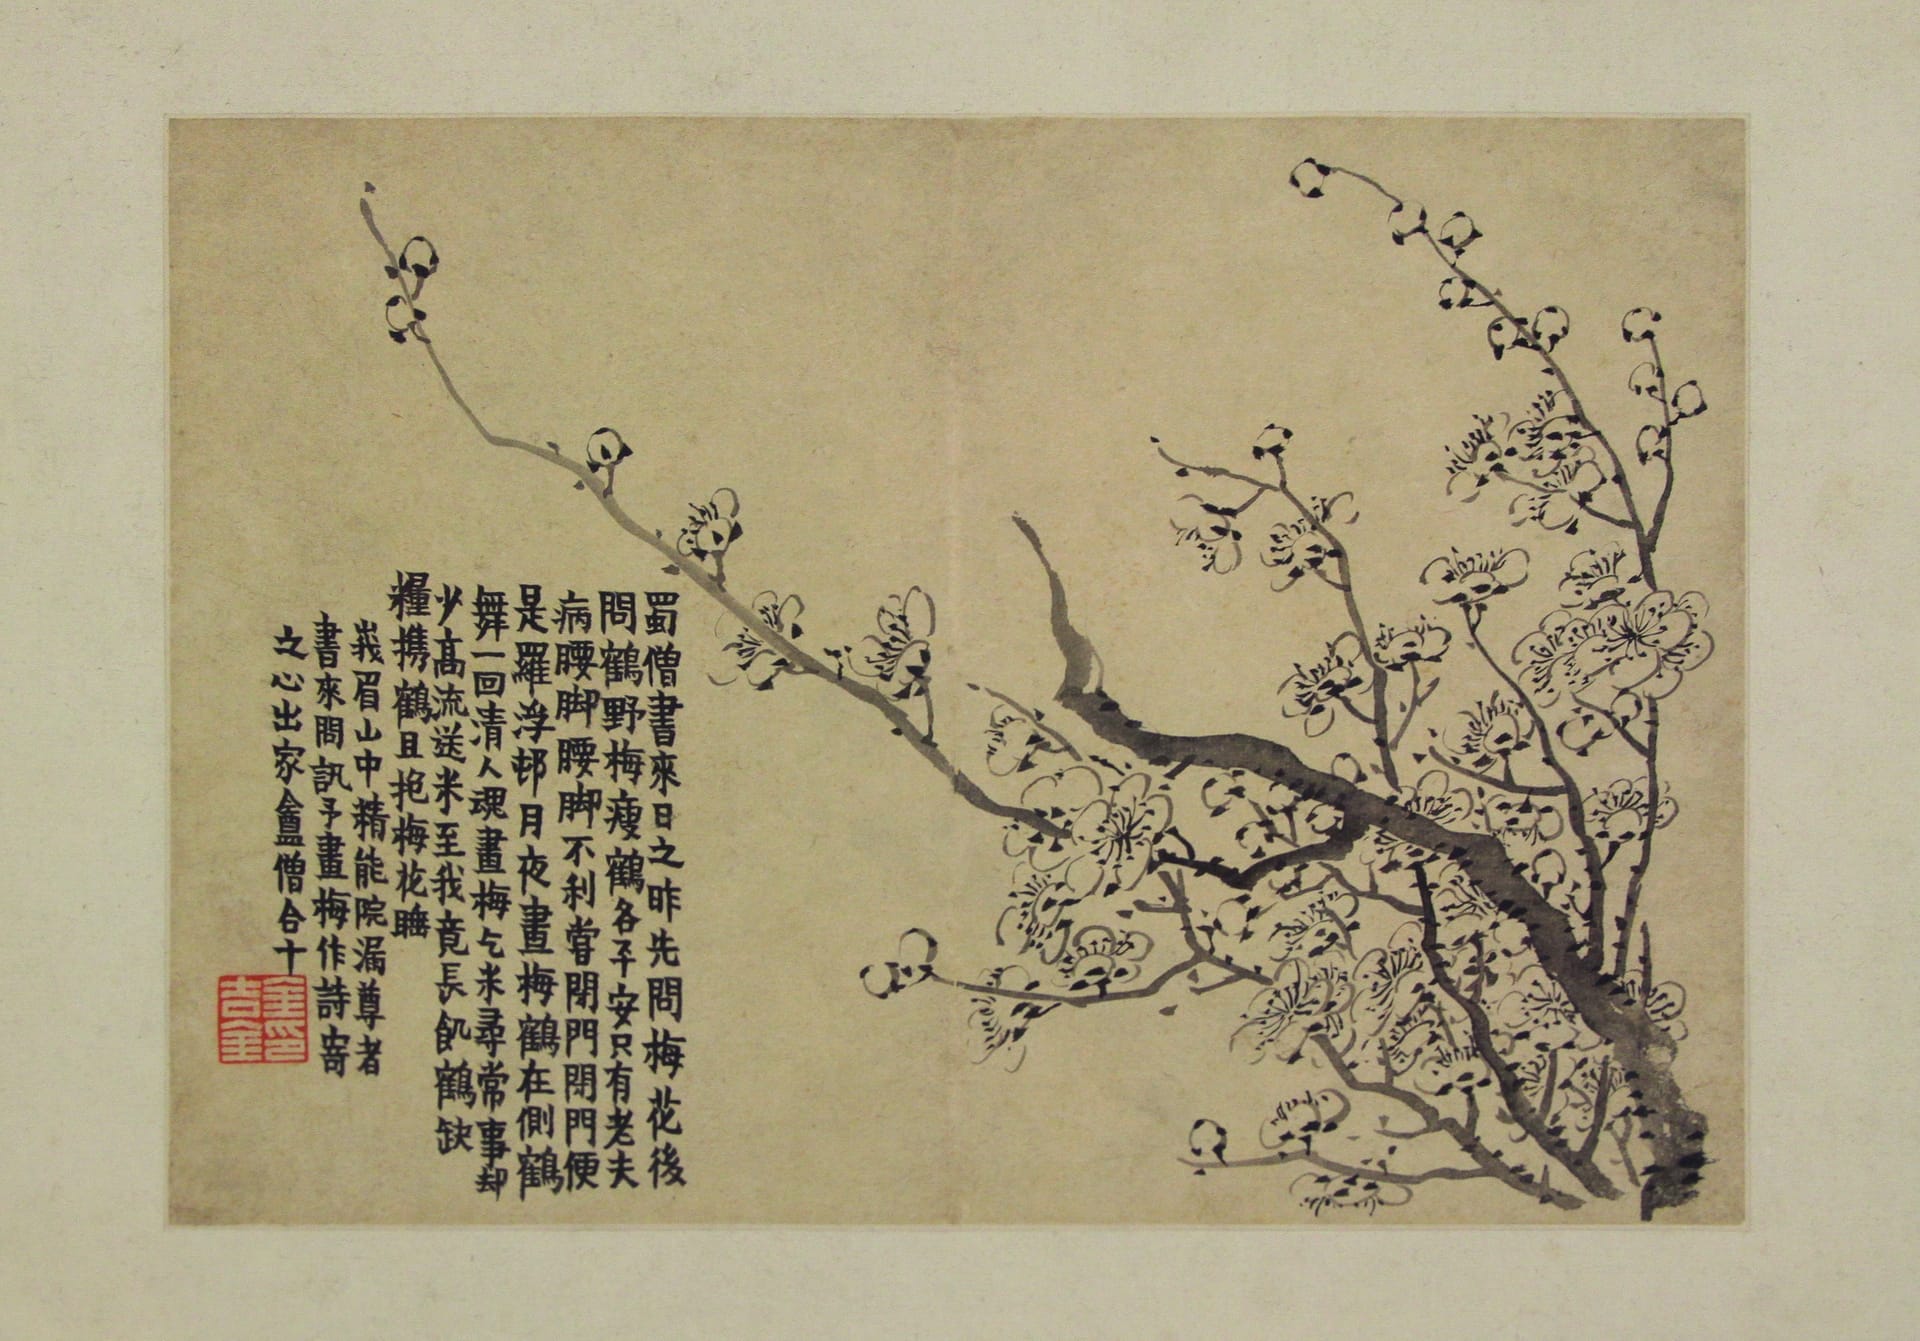 蜀僧書來日之昨先問梅花後
問鶴野梅瘦鶴各平安只有老夫
病腰脚腰脚不利嘗閉門閉門便
是羅浮邨月夜畫梅鶴在側鶴
舞一回清人魂畫梅乞米尋常事却
少高流送米至我竟長飢鶴缺
糧攜鶴且抱梅花睡
峩眉山中精能院漏尊者
書來問訊予畫梅作詩寄
之心出家盦僧合十
金
吉金